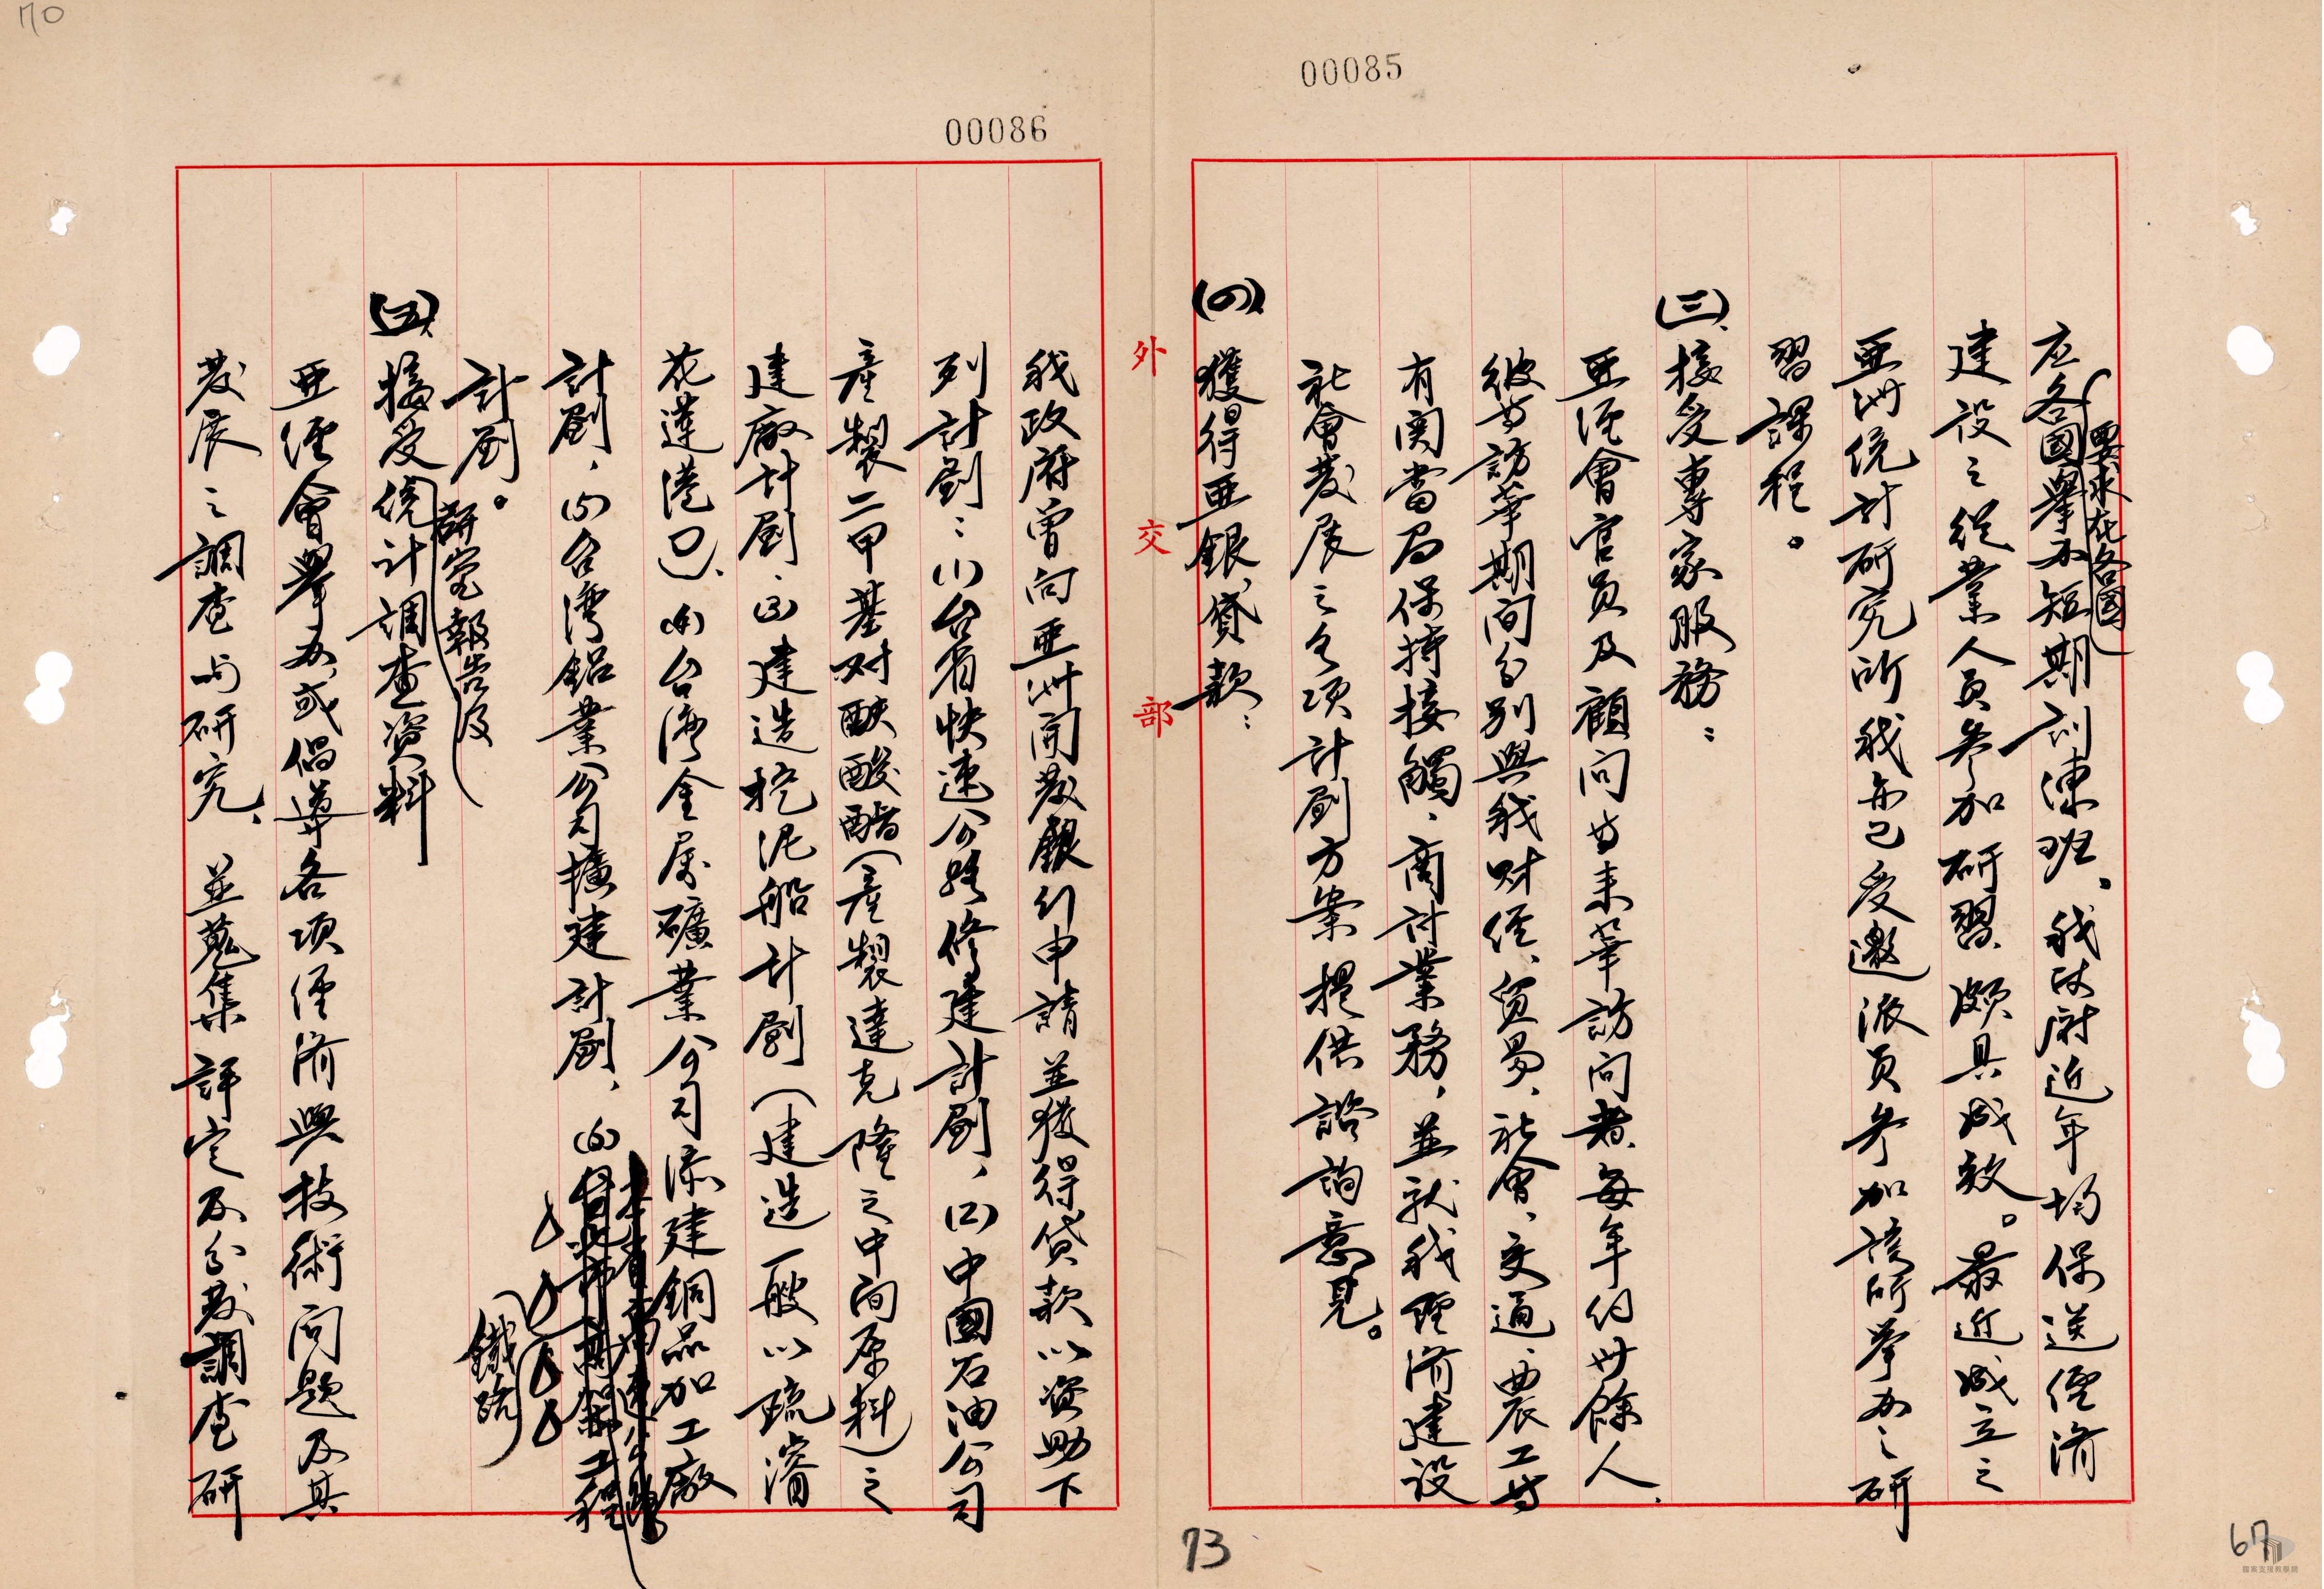 70
00085
00086
应各國要求在各國舉办短期訓練班、我政府近年均保送經濟
建設之從業人員參加研習、頗具成效。最近成立之
亞洲統計研究所我亦已受邀派員參加該所舉办之研
習課程。
(三)、接受專家服務:
亞經會官員及顧问等来華訪问者、每年约卅餘人、
彼等訪華期间分别與我财經、貿易、社會、交通、農工等
有関當局保持接觸、商討業務、並就我經濟建設
社會發展之各项計劃方案提供諮詢意見。
(四)、獲得亞銀貸款:
外交部
我政府曾向亞洲開發銀行申請並獲得貸款以资助下
列計劃:(1)台省快速公路修建計劃、(2)中國石油公司
產製二甲基对酞酸酯(產製達克隆之中间原料)之
建廠計劃、(3)建造挖泥船計劃(建造一艘以疏濬
花蓮港口)、(4)台灣金属礦業公司添建銅品加工廠
計劃、(5)台灣鋁業公司擴建計劃、(6)鐵路
計劃。
(五)、接受研究報告及統計調查資料
亞經會舉办或倡導各项經濟與技術问題及其
發展之調查与研究、並蒐集評定及分發調查研
73
67
檔案支援教學網